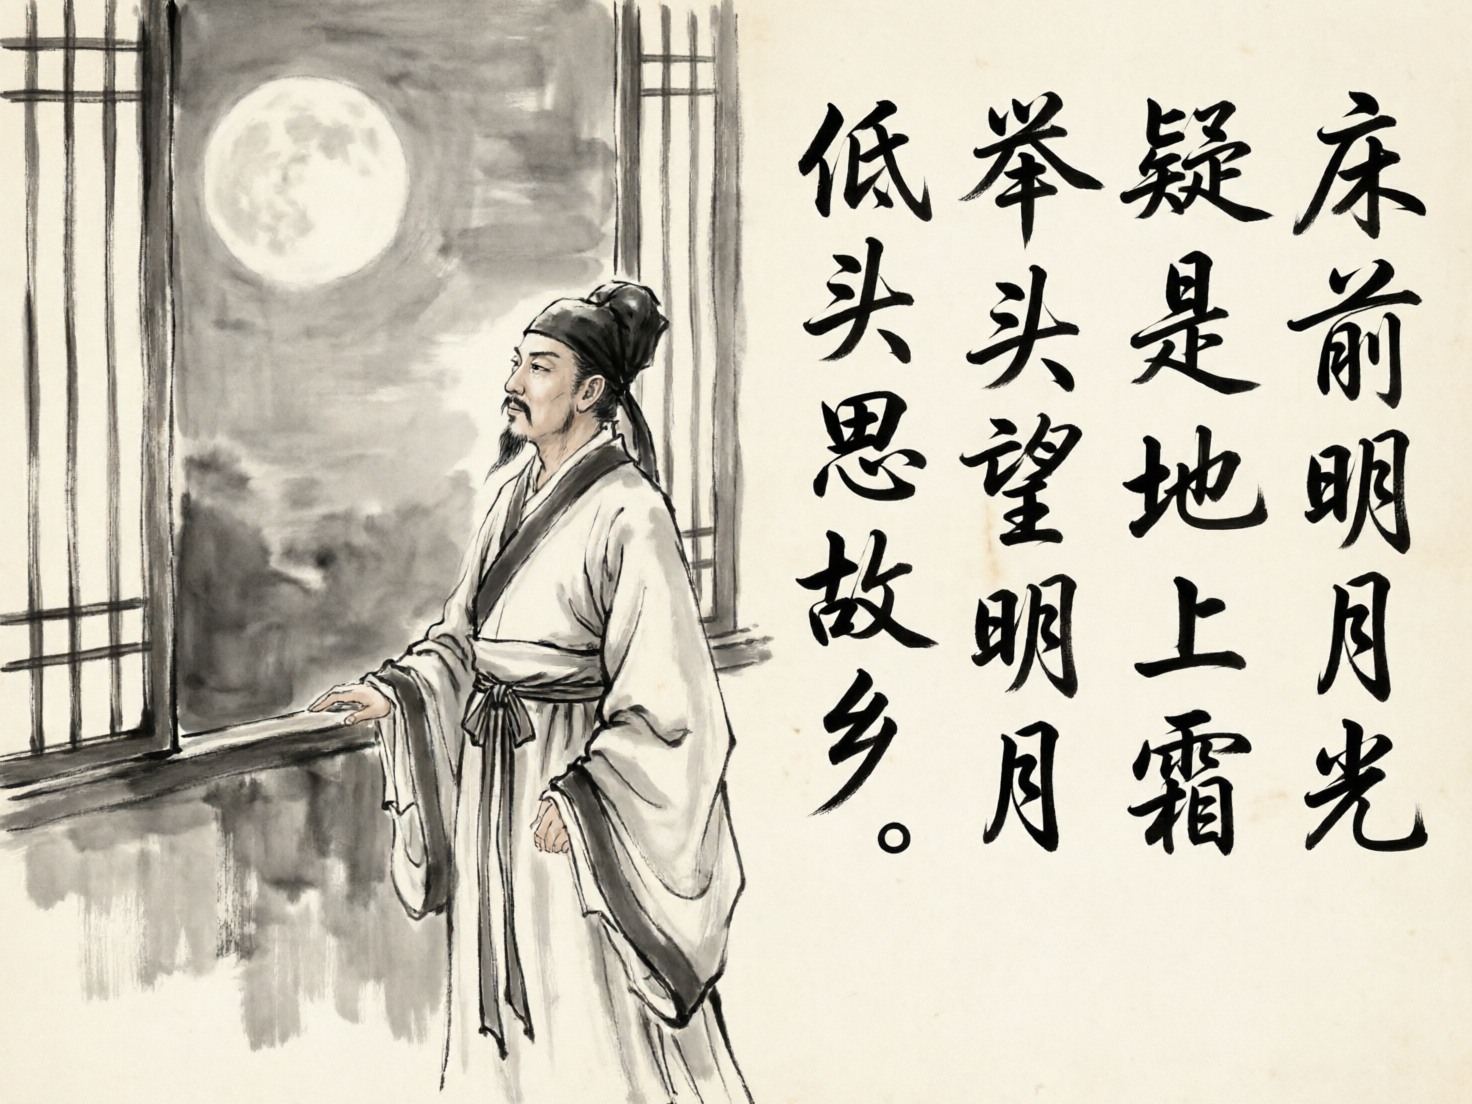 床前明月光
疑是地上霜
举头望明月
低头思故乡。